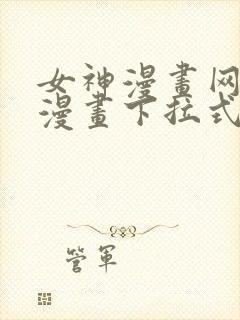 女神漫畫网
漫畫下拉式
管軍